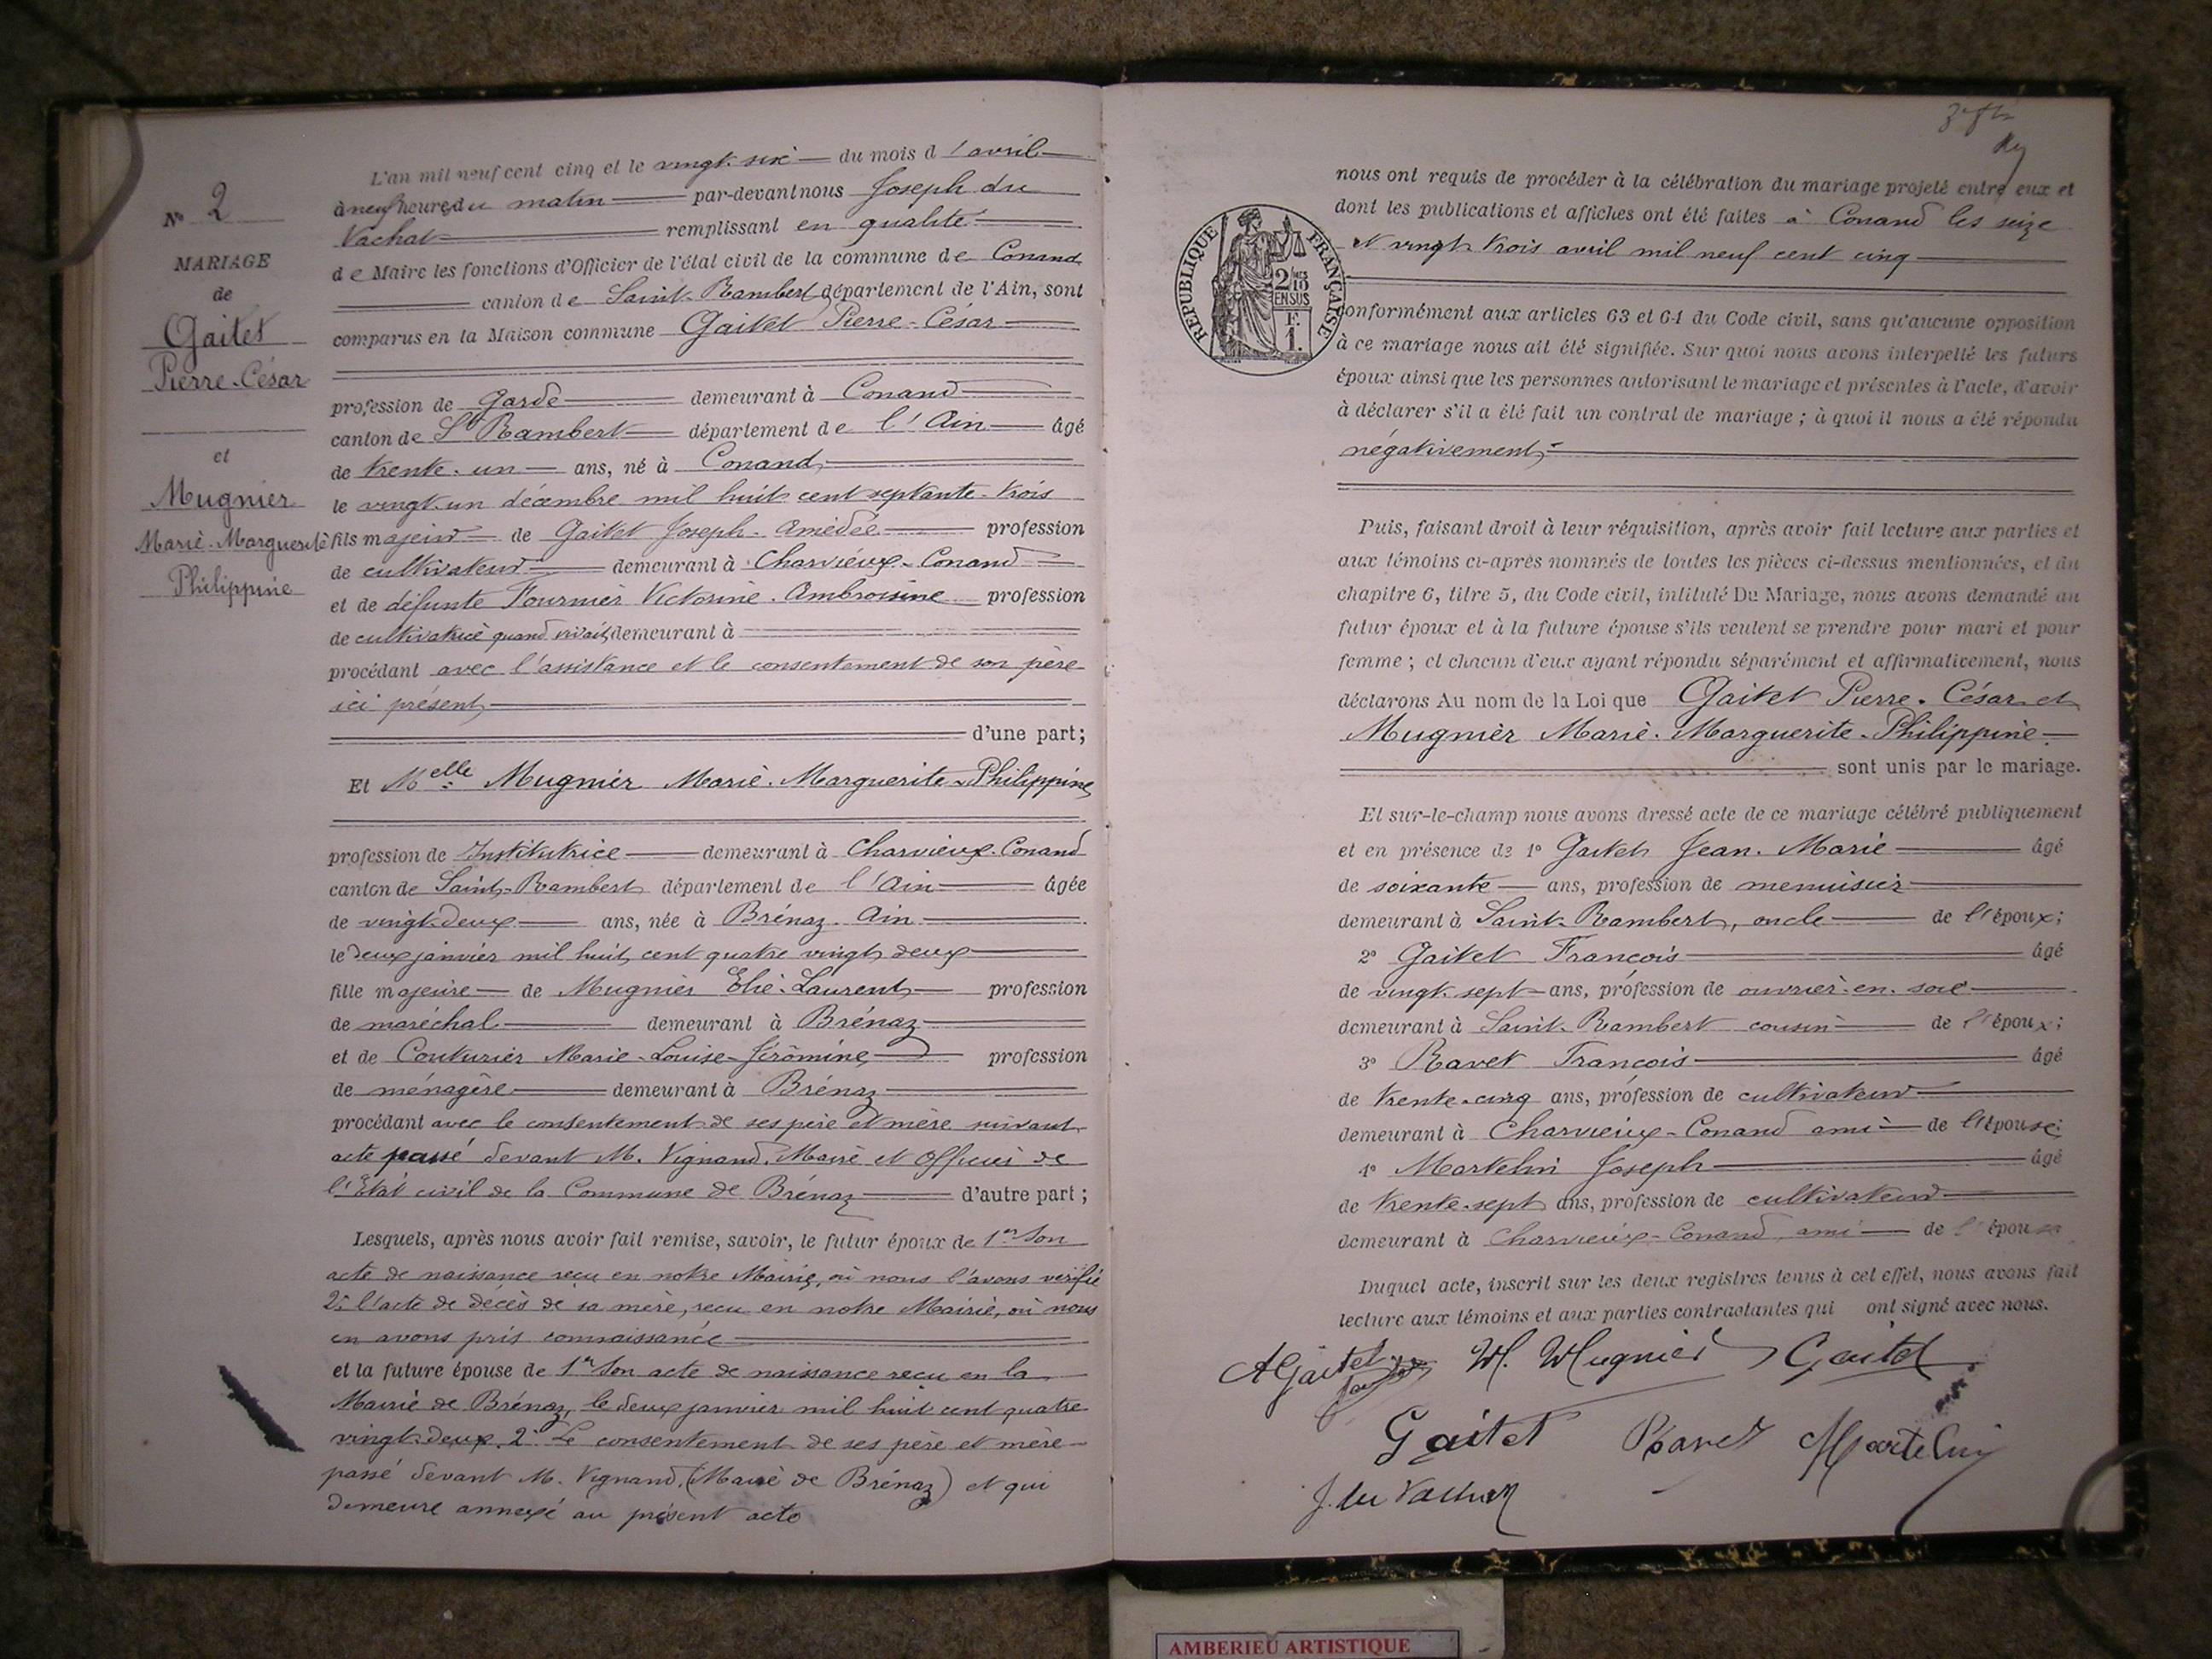 N° 2
MARIAGE
de
Gaitet
Pierre-César
et
Mugnier
Marie-Marguerite
Philippine
L'an mil neuf cent cinq et le vingt-six du mois d'avril
à neuf heures du matin par-devant nous Joseph du
Vachat remplissant en qualité
de Maire les fonctions d'Officier de l'état civil de la commune de Conand
canton de Saint-Rambert département de l'Ain, sont
comparus en la Maison commune Gaitet Pierre-César
profession de Garde demeurant à Conand
canton de St Rambert département de l'Ain âgé
de trente-un ans, né à Conand,
le vingt-un décembre mil huit cent septante-trois
fils majeur de Gaitet Joseph-Amédée profession
de cultivateur demeurant à Charvieux-Conand
et de défunte Fournier Victorine-Ambroisine profession
de cultivatrice quand vivait, demeurant à
procédant avec l'assistance et le consentement de son père
ici présent,
d'une part;
Et Melle Mugnier Marie-Marguerite-Philippine
profession de Institutrice demeurant à Charvieux-Conand
canton de Saint-Rambert département de l'Ain âgée
de vingt-deux ans, née à Brénaz-Ain
le deux janvier mil huit cent quatre vingt deux
fille majeure de Mugnier Elie-Laurent profession
de maréchal demeurant à Brénaz
et de Couturier Marie-Louise-Jérômine, profession
de ménagère demeurant à Brénaz
procédant avec le consentement de ses père et mère suivant
acte passé devant M. Vignand, Maire et Officier de
l'Etat civil de la Commune de Brénaz d'autre part;
Lesquels, après nous avoir fait remise, savoir, le futur époux de 1er Son
acte de naissance reçu en notre Mairie, où nous l'avons vérifié
2° l'acte de décès de sa mère, reçu en notre Mairie, où nous
en avons pris connaissance
et la future épouse de 1er Son acte de naissance reçu en la
Mairie de Brénaz, le deux janvier mil huit cent quatre
vingt-deux. 2° Le consentement de ses père et mère
passé devant M. Vignand, (Maire de Brénaz) et qui
demeure annexé au présent acte
nous ont requis de procéder à la célébration du mariage projeté entre eux et
dont les publications et affiches ont été faites à Conand les seize
et vingt trois avril mil neuf cent cinq
RÉPUBLIQUE FRANÇAISE
2/10 MES
EN SUS
F.
1.
conformément aux articles 63 et 64 du Code civil, sans qu'aucune opposition
à ce mariage nous ait été signifiée. Sur quoi nous avons interpellé les futurs
époux ainsi que les personnes autorisant le mariage et présentes à l'acte, d'avoir
à déclarer s'il a été fait un contrat de mariage; à quoi il nous a été répondu
négativement,
Puis, faisant droit à leur réquisition, après avoir fait lecture aux parties et
aux témoins ci-après nommés de toutes les pièces ci-dessus mentionnées, et du
chapitre 6, titre 5, du Code civil, intitulé Du Mariage, nous avons demandé au
futur époux et à la future épouse s'ils veulent se prendre pour mari et pour
femme; et chacun d'eux ayant répondu séparément et affirmativement, nous
déclarons Au nom de la Loi que Gaitet Pierre-César et
Mugnier Marie-Marguerite-Philippine
sont unis par le mariage.
Et sur-le-champ nous avons dressé acte de ce mariage célébré publiquement
et en présence de 1° Gaitet Jean-Marie âgé
de soixante ans, profession de menuisier
demeurant à Saint-Rambert, oncle de l'époux;
2° Gaitet François âgé
de vingt-sept ans, profession de ouvrier-en-soie
demeurant à Saint-Rambert cousin de l'époux;
3° Ravet François âgé
de trente-cinq ans, profession de cultivateur
demeurant à Charvieux-Conand ami de l'épouse;
4° Martelin Joseph âgé
de trente-sept ans, profession de cultivateur
demeurant à Charvieux-Conand, ami de l'épouse
Duquel acte, inscrit sur les deux registres tenus à cet effet, nous avons fait
lecture aux témoins et aux parties contractantes qui ont signé avec nous.
AGaitet M. Mugnier Gaitet
Gaitet Ravet Martelin
J. du Vachat
AMBERIEU ARTISTIQUE